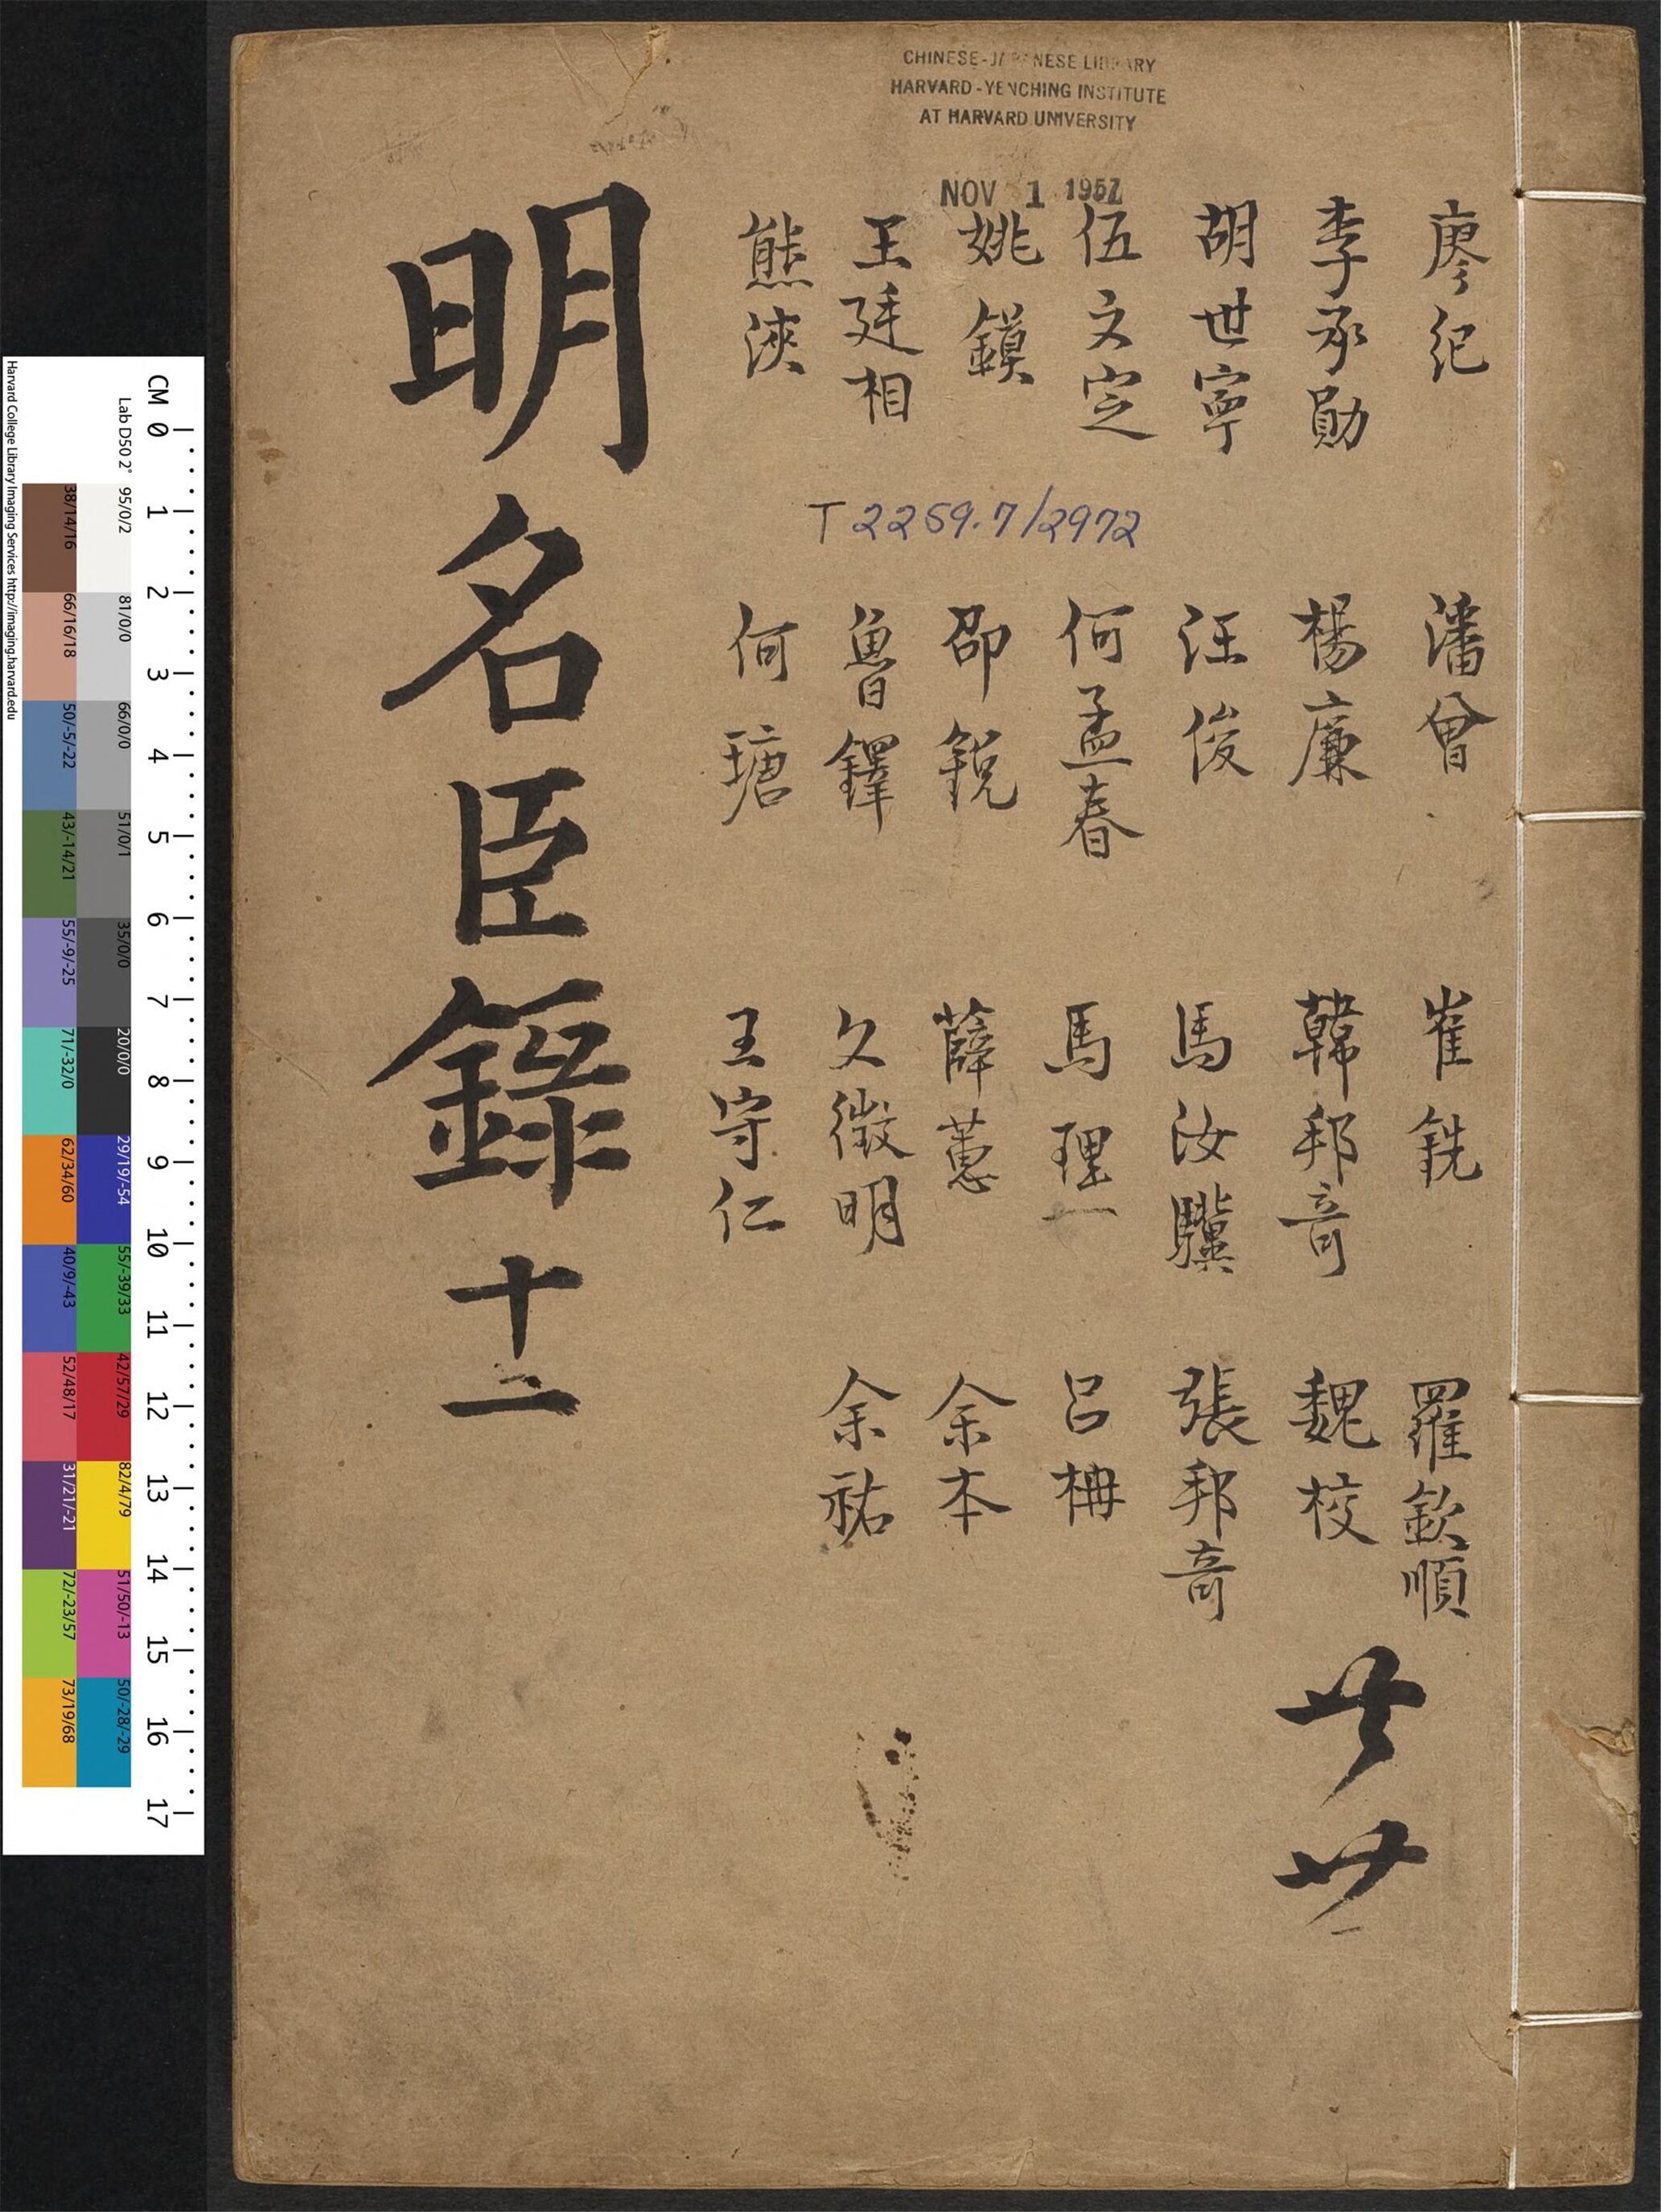 CHINESE-JAPANESE LIBRARY
HARVARD-YENCHING INSTITUTE
AT HARVARD UNIVERSITY
NOV 1 1957
廖紀
李承勛
胡世寧
伍文定
姚鏌
王廷相
熊浹
T 2259.7/2972
潘曾
楊廉
汪俊
何孟春
邵銳
魯鐸
何瑭
崔銑
韓邦奇
馬汝驥
馬理
薛蕙
文徵明
王守仁
羅欽順
魏校
張邦奇
呂柟
余本
余祐
廿
廿一
明名臣錄 十二
CM 0 1 2 3 4 5 6 7 8 9 10 11 12 13 14 15 16 17
Lab D50 2°
95/0/2
81/0/0
66/0/0
51/0/1
35/0/0
20/0/0
29/19/-54
55/-39/33
42/57/29
82/4/79
51/50/-13
50/-28/-29
38/14/16
66/16/18
50/-5/-22
43/-14/21
55/-9/-25
71/-32/0
62/34/60
40/9/-43
52/48/17
31/21/-21
72/-23/57
73/19/68
Harvard College Library Imaging Services http://imaging.harvard.edu